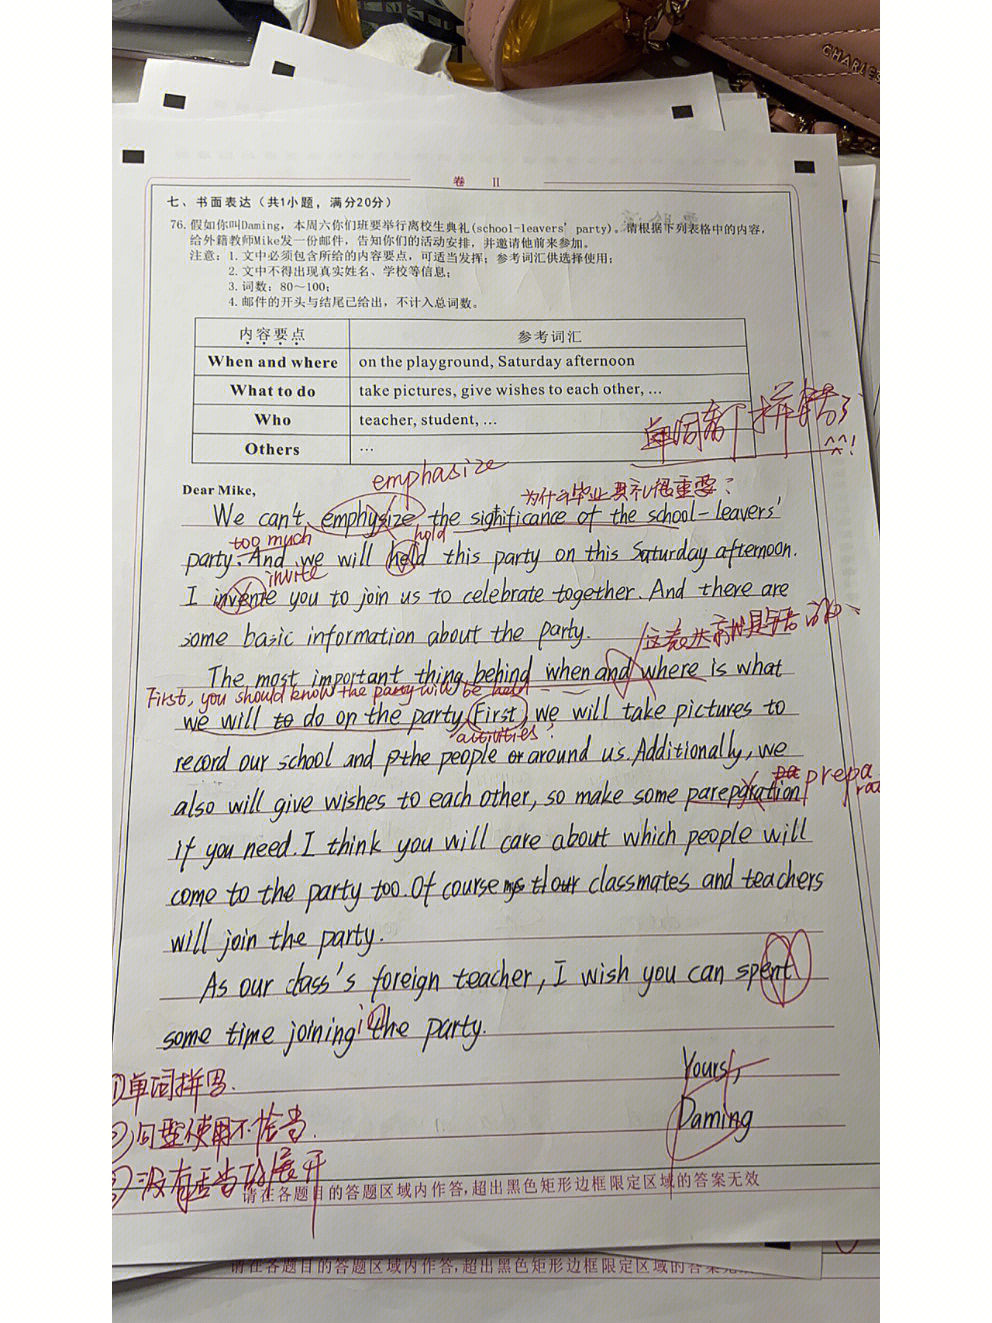 CHARLES
卷 II
七、书面表达（共1小题，满分20分）
76. 假如你叫Daming，本周六你们班要举行离校生典礼(school-leavers' party)。请根据下列表格中的内容，
给外籍教师Mike发一份邮件，告知你们的活动安排，并邀请他前来参加。
注意：1. 文中必须包含所给的内容要点，可适当发挥；参考词汇供选择使用；
2. 文中不得出现真实姓名、学校等信息；
3. 词数：80～100；
4. 邮件的开头与结尾已给出，不计入总词数。
内容要点 参考词汇
When and where on the playground, Saturday afternoon
What to do take pictures, give wishes to each other, …
Who teacher, student, …
Others …
单词都拼错了
^^!
emphasize
为什么毕业典礼很重要？
Dear Mike,
We can't emphysize the significance of the school-leavers'
too much hold
party. And we will held this party on this Saturday afternoon.
invite
I invente you to join us to celebrate together. And there are
some basic information about the party.
The most important thing behind when and where is what
First, you should know the party will be held
we will to do on the party. First, we will take pictures to
activities?
record our school and the people or around us. Additionally, we
also will give wishes to each other, so make some pareparation
prepa
if you need. I think you will care about which people will
come to the party too. Of course our classmates and teachers
will join the party.
As our class's foreign teacher, I wish you can spent
some time joining the party.
in
Yours,
Daming
①单词拼写.
②句型使用不恰当.
③没有适当的展开
请在各题目的答题区域内作答,超出黑色矩形边框限定区域的答案无效
请在各题目的答题区域内作答,超出黑色矩形边框限定区域的答案无效